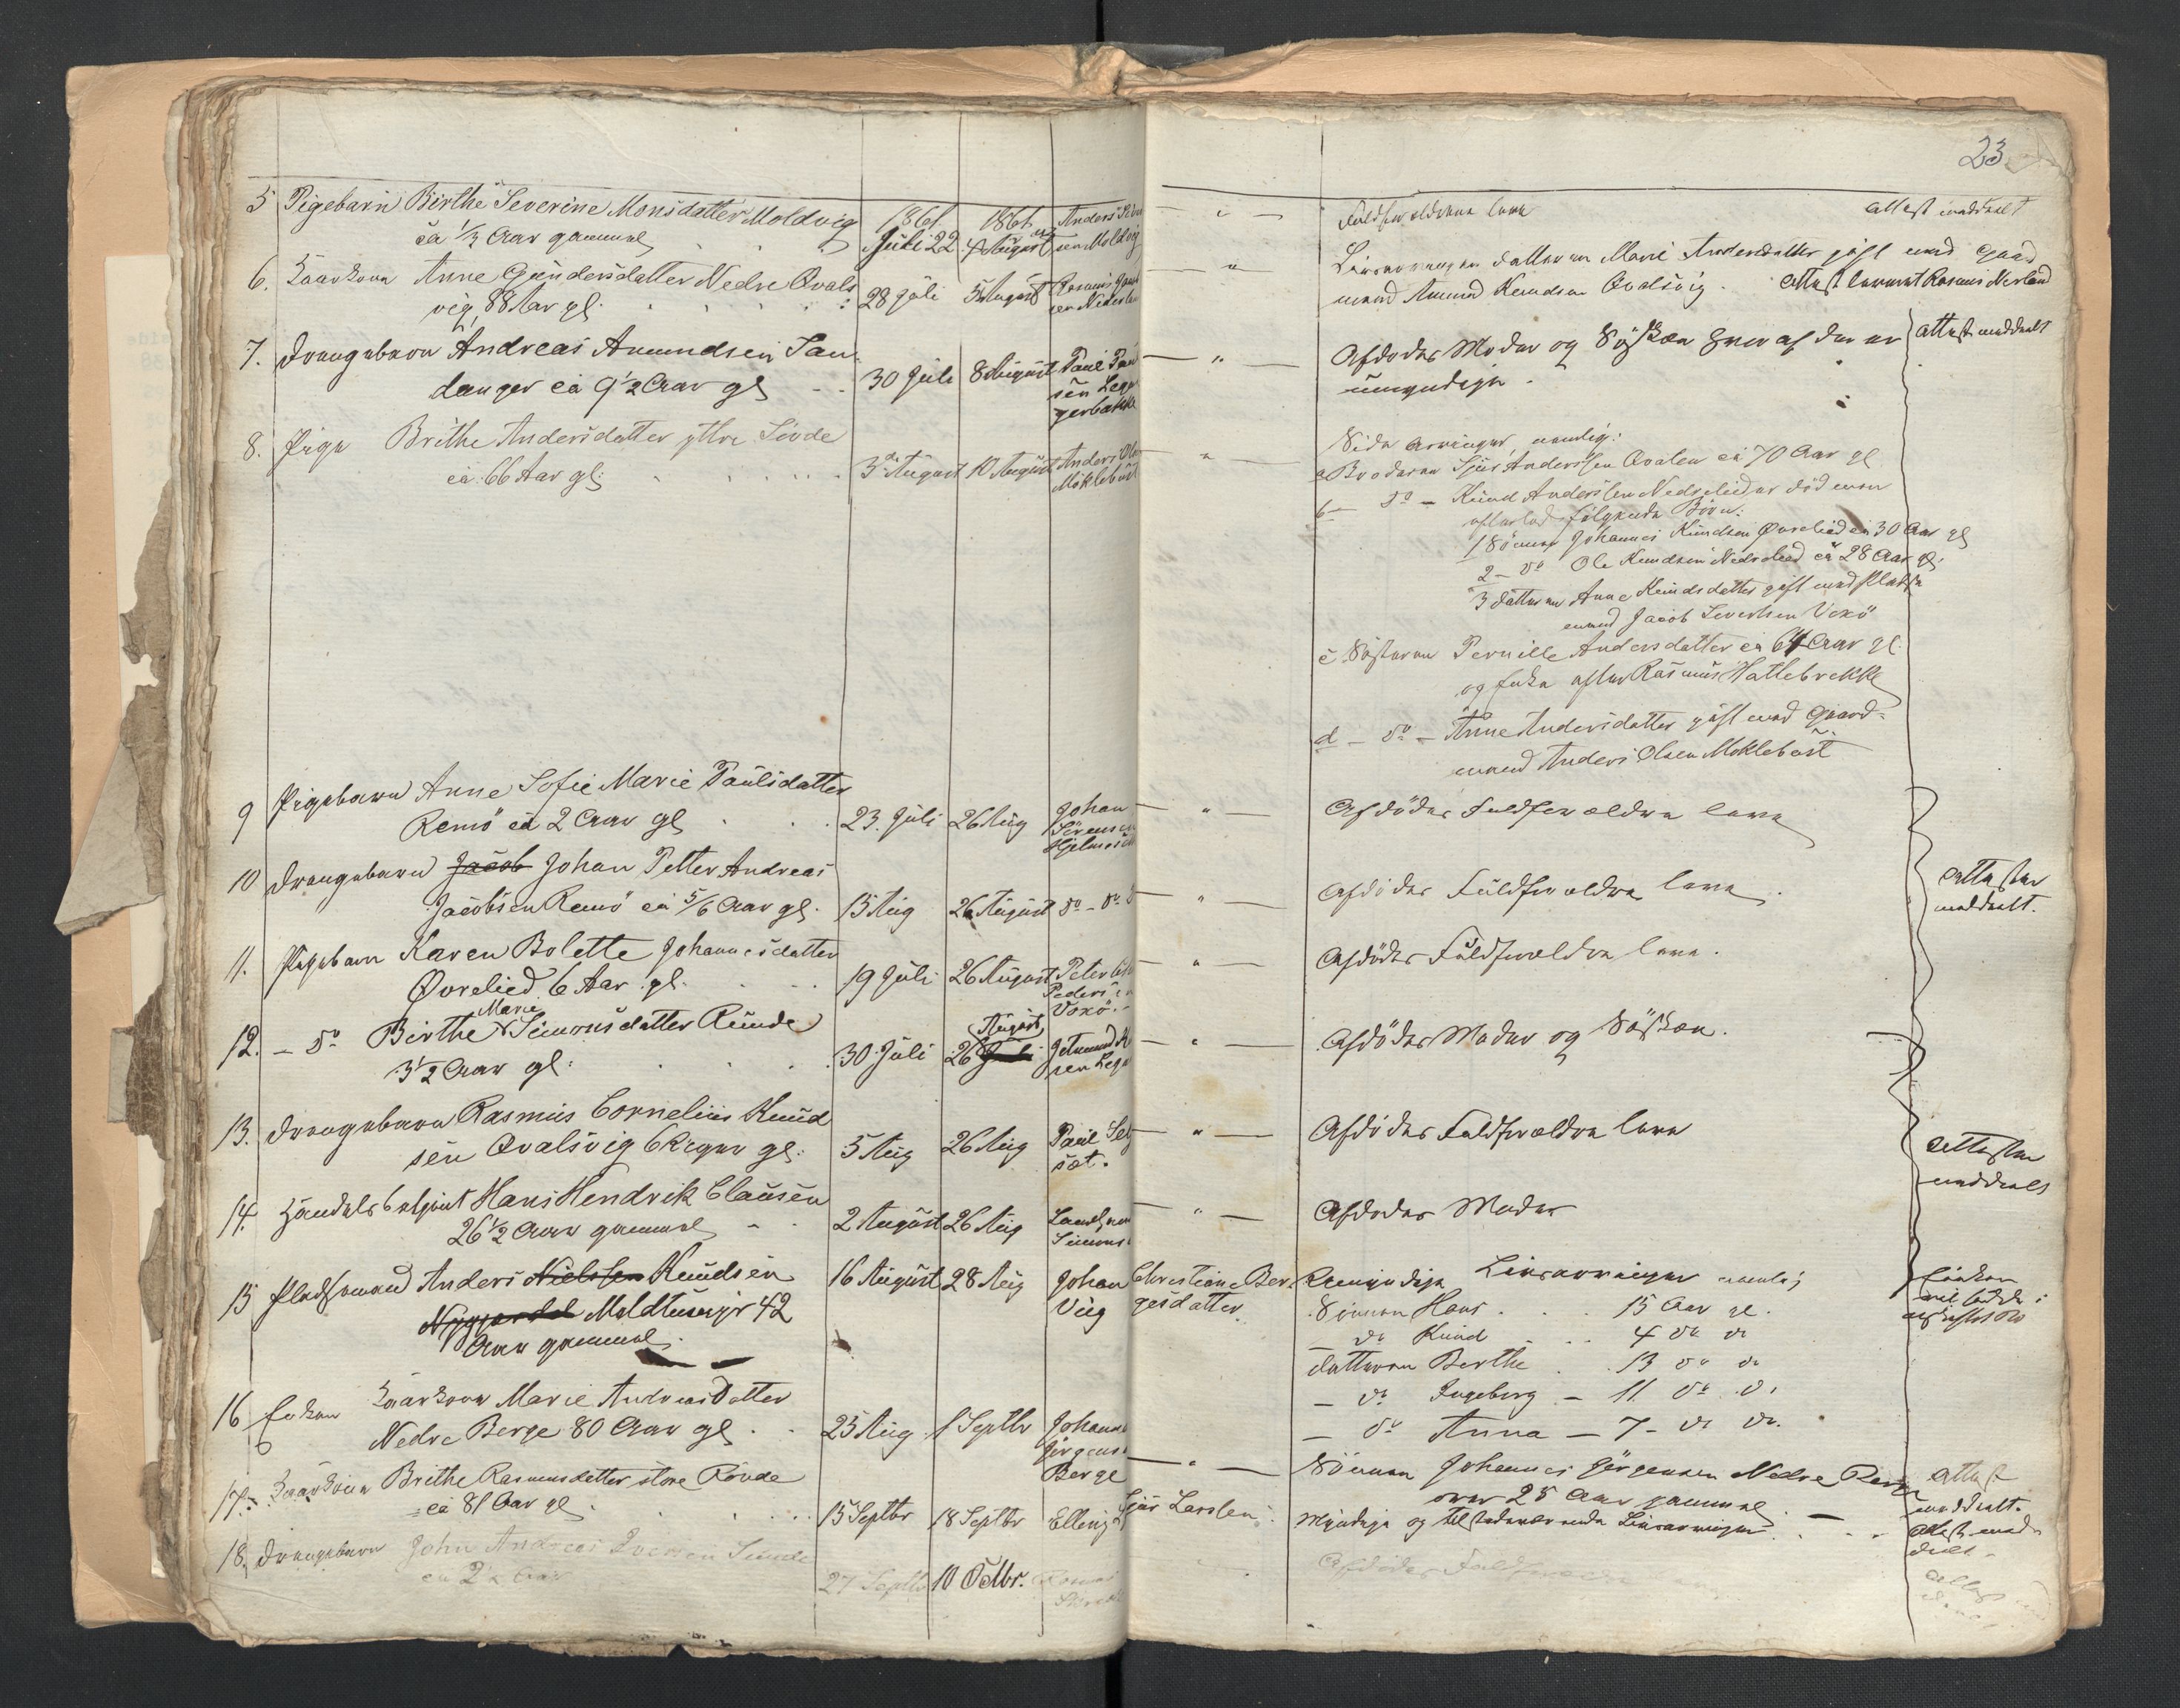 23
5 Pigebarn Birthe Severine Monsdatter Moldvig
ca 1/3 Aar gammel
1861 Juli 22
1861 4 August
Anders
sen Moldvig
Fuldforældrene leve
attest meddeelt
6. Kaarkone Anne Gundersdatter Nedre Qvals
vig, 88 Aar gl.
28 Juli
5 August
Rasmus
Livsarvingen datteren Marie Andersdatter gift med Gaard
mand Amund Knudsen Qvalsvig. Attest leveret Rasmus Nerland
7. Drengebarn Andreas Amundsen San
danger ca 9 1/2 Aar gl
30 Juli
8 August
Paul
sen Leg
gerbakke
Afdødes Moder og Søskæn hvoraf der er
umyndige.
attest meddeelt
8. Pige Brithe Andersdatter ytre Sövde
ca: 66 Aar gl:
3de August
10 August
Anders Ols
Möklebust
Side Arvinger, nemlig:
a Broderen Sjur Anderssen Qvalen ca 70 Aar gl
b do Knud Anderssen Nedrelied er död men
efterlod følgende Börn:
1 Sönnen Johannes Knudsen Øvrelied ca 30 Aar gl
2 - do Ole Knudsen Nedrelied ca 28 Aar gl.
3 datteren Anne Knudsdatter gift med Plads
mand Jacob Severtsen Voxö
c Søsteren Pernille Andersdatter ca 64 Aar gl.
og Enke efter Rasmus Hattebrekke
d - do - Anne Andersdatter gift med Gaard-
mand Anders Olsen Moklebust
9 Pigebarn Anne Sofie Marie Paulsdatter
Remö ca 2 Aar gl
23. Juli
26 Aug
Johan
Sörensen
Afdödes Fuldforældre leve
10 Drengebarn Jacob Johan Petter Andreas
Jacobsen Remö ca 5/6 Aar gl.
15 Aug
26 August
do - do
Afdödes Fuldforældre leve.
Attester
meddeelt.
11. Pigebarn Karen Bolette Johannesdatter
Øvrelied 6 Aar gl.
19 Juli
26 August
Peter
Peders
Voxö.
Afdödes Fuldforældre leve.
12. - do Birthe Marie Simonsdatter Runde
3 1/2 Aar gl:
30 Juli
26 Juli August
Jetmund
sen
Afdödes Moder og Søskæn.
13. Drengebarn Rasmus Cornelius Knud
sen Qvalsvig 6 Uger gl:
5 Aug
26 Aug
Paul
sæt.
Afdödes Fuldforældre leve
Attester
meddeelt
14. Handelsbetjent Hans Hendrik Clausen
26 1/2 Aar gammel
2 August
26 Aug
Simons
Afdødes Moder
15 Pladsmand Anders Nielssen Knudsen
Nyggardal Moldtumyr 42
Aar gammel.
16 August
28 Aug
Johan
Vug
Christiane Ber
gesdatter
Umyndige Livsarvinger nemlig
Sönnen Hans . . . 15 Aar gl.
do Knud . . . 4 do do
datteren Berthe . . 13 do do
- do Ingeborg - 11 do do
- do Anna - 7 - do do.
16 Enken Kaarkone Marie Andreasdatter
Nedre Berge 80 Aar gl.
25 Aug
1 Septbr
Johannes
Jörgens
Berge
Sönnen Johannes Jörgensen Nedre Berge
over 25 Aar gammel
Attest
meddeelt.
17. Kaarkone Brithe Rasmusdatter store Rövde
ca 81 Aar gl.
15 Septbr
18 Septbr
Elling
Sjur Larssen
Myndige og tilstedeværende Livsarvinger
attest med
deelt
18. Drengebarn John Andreas Iversen Sunde
ca 2 1/2 Aar
27 Septbr
10 Octbr.
Afdödes
attest